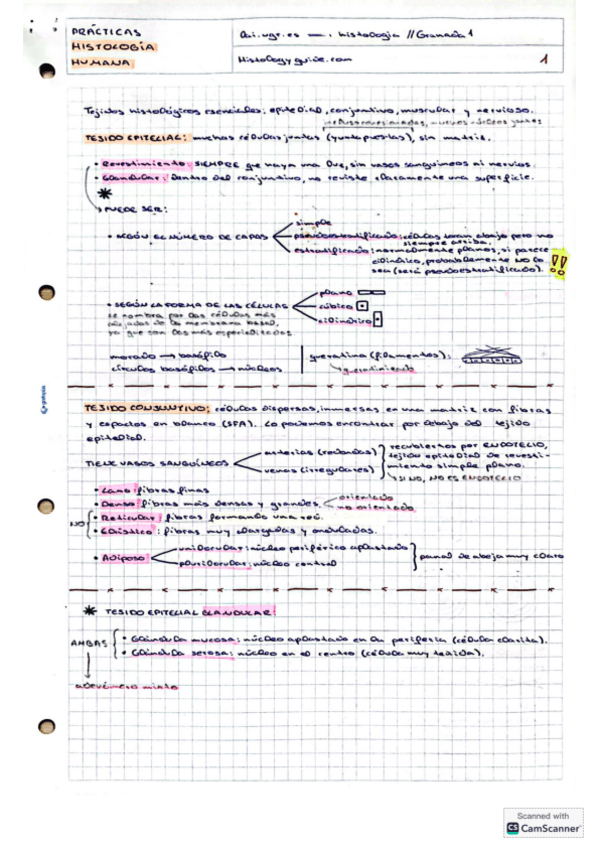 PRÁCTICAS
HISTOLOGÍA
HUMANA
histología // Granada 1
Histologyguide.com
1
Tejidos histológicos esenciales: epitelial, conjuntivo, muscular y nervioso.
TEJIDO EPITELIAL: muchas células juntas (yuxtapuestas), sin matriz.
• Revestimiento: SIEMPRE que haya una luz, sin vasos sanguíneos ni nervios.
• Glandular: Dentro del conjuntivo, no reviste claramente una superficie.
PUEDE SER:
• SEGÚN EL NÚMERO DE CAPAS
simple
pseudoestratificado: células tocan abajo pero no
siempre arriba.
estratificado: normalmente planos, si parece
cilíndrico, probablemente NO lo
sea (será pseudoestratificado).
!!
• SEGÚN LA FORMA DE LAS CÉLULAS
plano
cúbico
cilíndrico
se nombra por las células más
alejadas de la membrana basal,
ya que son las más especializadas.
morado → basófilo
círculos basófilos → núcleos
queratina (filamentos):
TEJIDO CONJUNTIVO: células dispersas, inmersas en una matriz con fibras
y espacios en blanco (SFA). Lo podemos encontrar por debajo del tejido
epitelial.
TIENE VASOS SANGUÍNEOS
arterias (redondas)
venas (irregulares)
recubiertos por ENDOTELIO,
tejido epitelial de revesti-
miento simple plano.
SI NO, NO ES ENDOTELIO
• Laxo: fibras finas
• Denso: fibras más densas y grandes.
orientado
no orientado
NO
• Reticular: fibras formando una red.
• Elástico: fibras muy alargadas y onduladas.
• Adiposo
unilocular: núcleo periférico aplastado
plurilocular: núcleo central
panal de abeja muy claro
* TEJIDO EPITELIAL GLANDULAR:
AMBAS
• Glándula mucosa: núcleo aplastado en la periferia (célula clarita).
• Glándula serosa: núcleo en el centro (célula muy teñida).
adenómero mixto
Scanned with
CS CamScanner